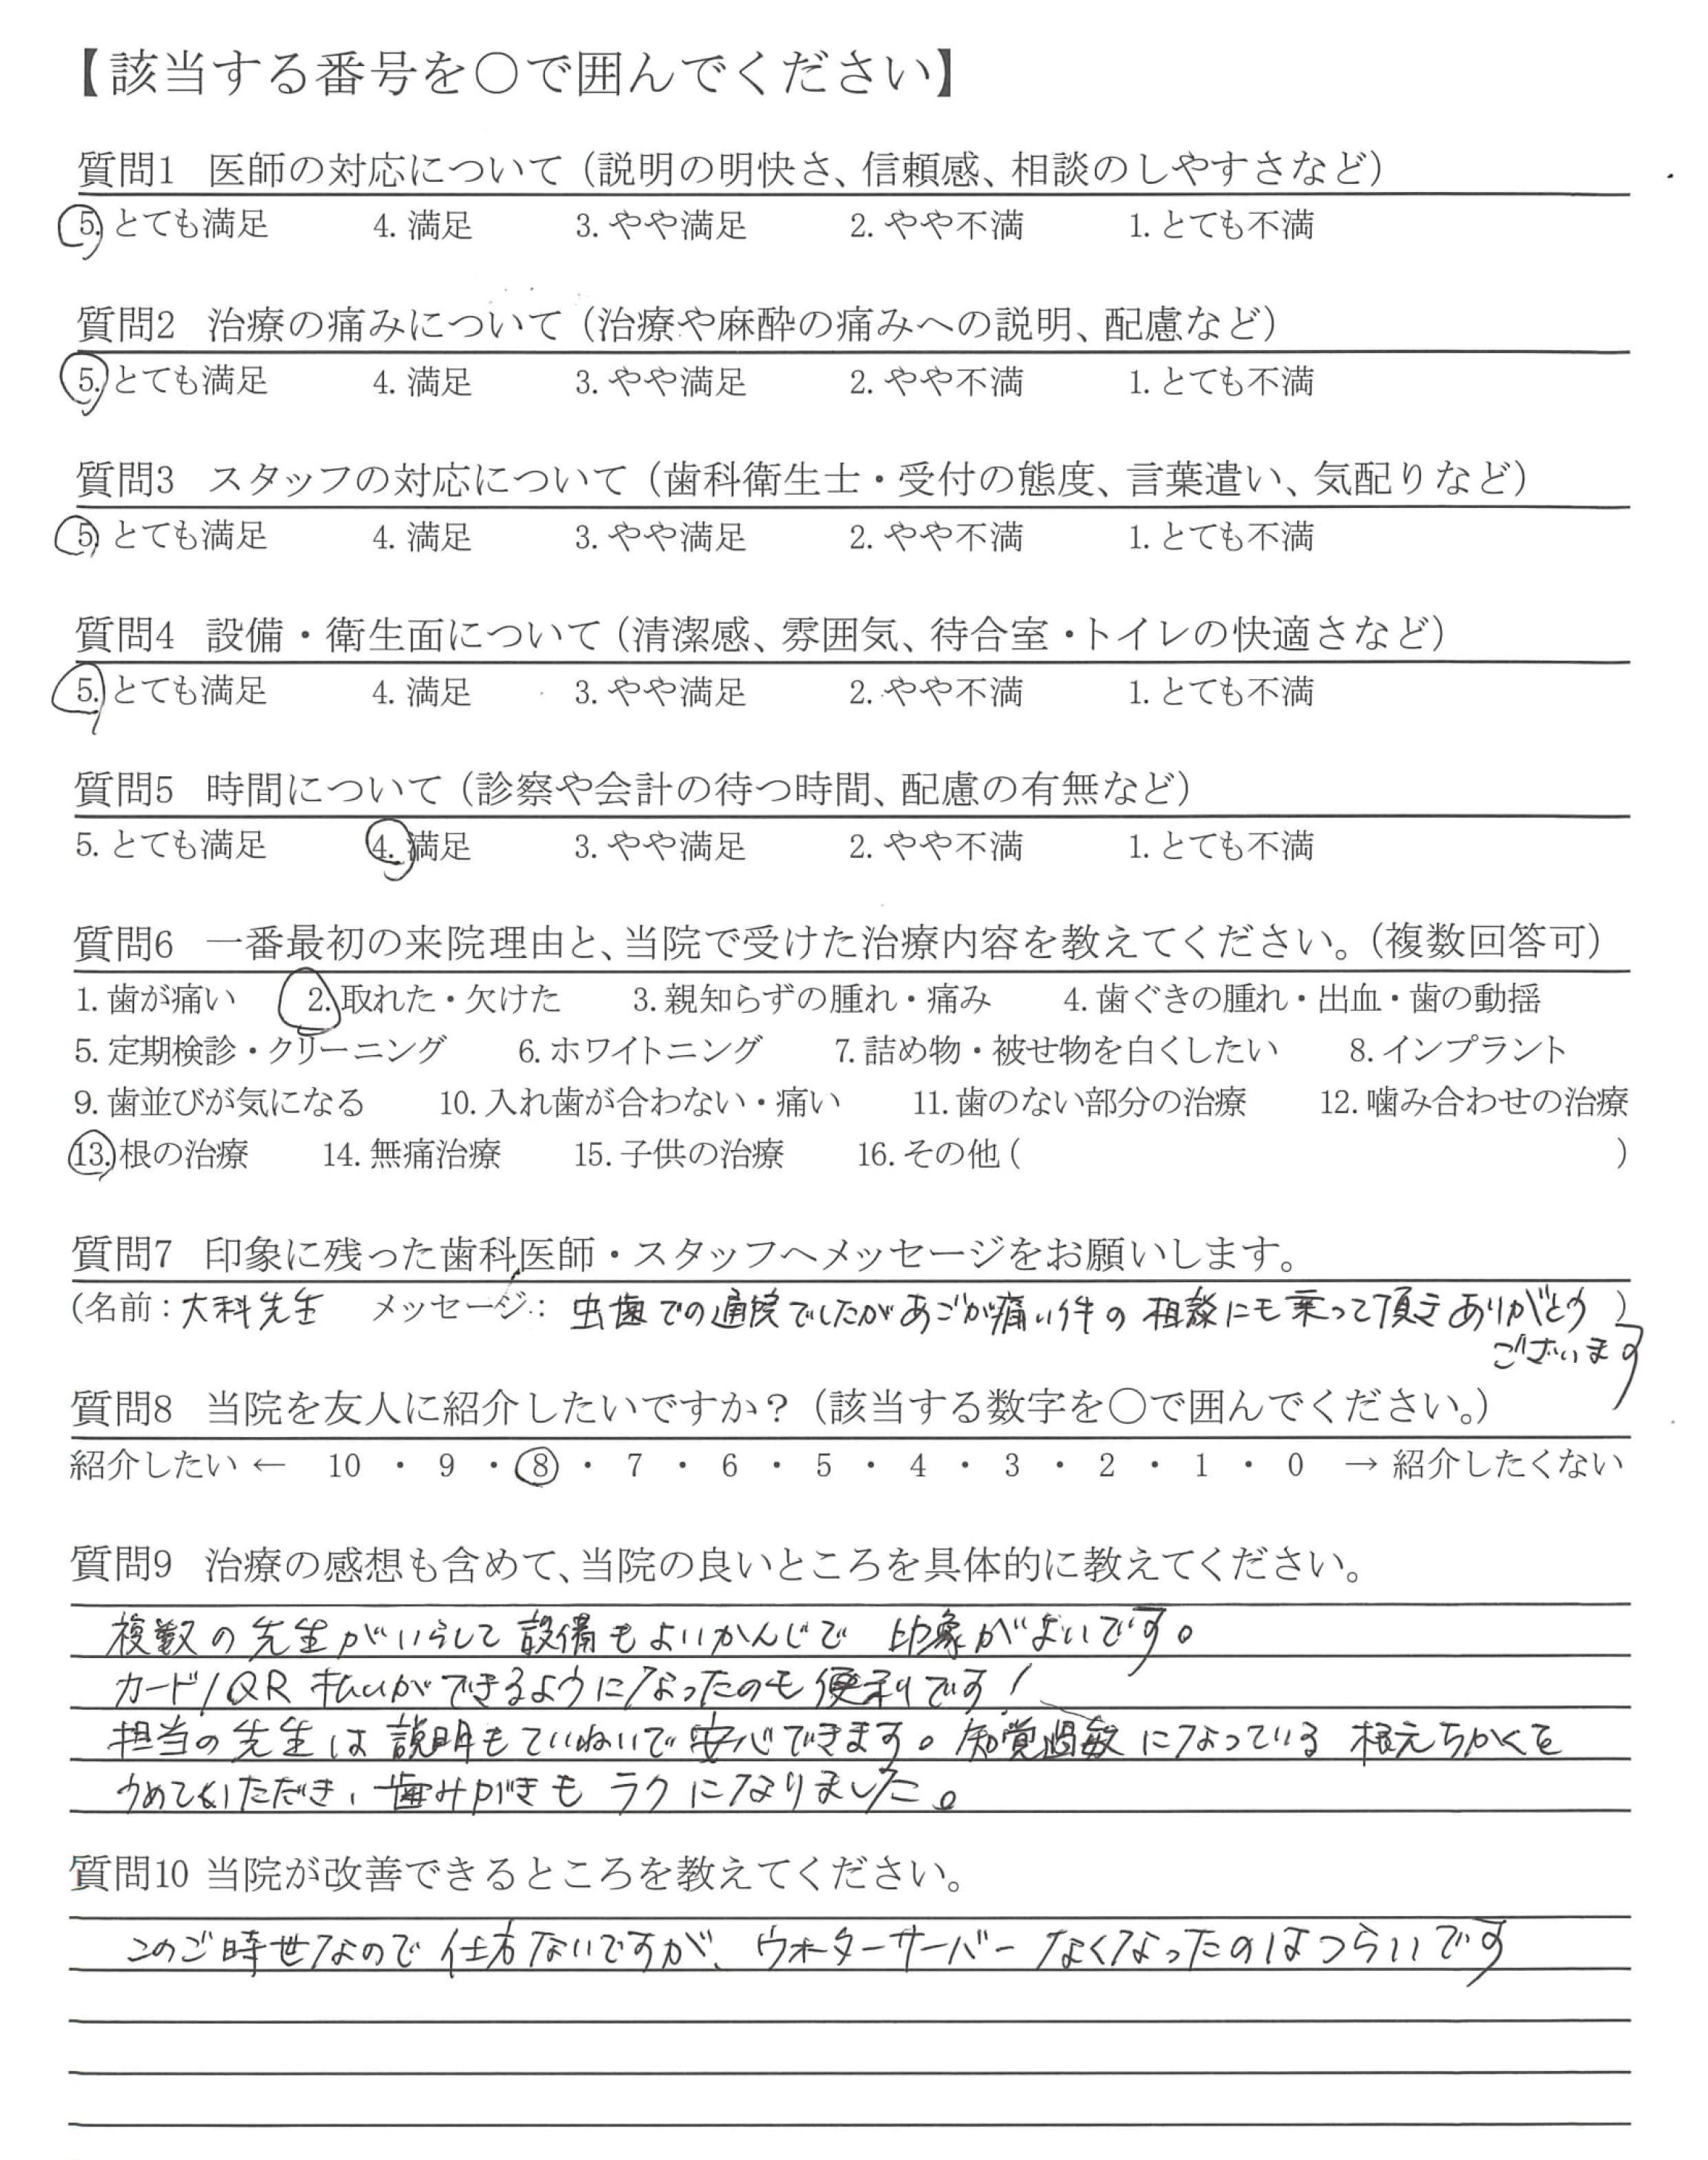 【該当する番号を○で囲んでください】
質問1 医師の対応について（説明の明快さ、信頼感、相談のしやすさなど）
5. とても満足 4. 満足 3. やや満足 2. やや不満 1. とても不満
質問2 治療の痛みについて（治療や麻酔の痛みへの説明、配慮など）
5. とても満足 4. 満足 3. やや満足 2. やや不満 1. とても不満
質問3 スタッフの対応について（歯科衛生士・受付の態度、言葉遣い、気配りなど）
5. とても満足 4. 満足 3. やや満足 2. やや不満 1. とても不満
質問4 設備・衛生面について（清潔感、雰囲気、待合室・トイレの快適さなど）
5. とても満足 4. 満足 3. やや満足 2. やや不満 1. とても不満
質問5 時間について（診察や会計の待つ時間、配慮の有無など）
5. とても満足 4. 満足 3. やや満足 2. やや不満 1. とても不満
質問6 一番最初の来院理由と、当院で受けた治療内容を教えてください。（複数回答可）
1. 歯が痛い 2. 取れた・欠けた 3. 親知らずの腫れ・痛み 4. 歯ぐきの腫れ・出血・歯の動揺
5. 定期検診・クリーニング 6. ホワイトニング 7. 詰め物・被せ物を白くしたい 8. インプラント
9. 歯並びが気になる 10. 入れ歯が合わない・痛い 11. 歯のない部分の治療 12. 噛み合わせの治療
13. 根の治療 14. 無痛治療 15. 子供の治療 16. その他（ ）
質問7 印象に残った歯科医師・スタッフへメッセージをお願いします。
（名前：大科先生 メッセージ：虫歯での通院でしたがあごが痛い件の相談にも乗って頂きありがとう）
ございます
質問8 当院を友人に紹介したいですか？（該当する数字を○で囲んでください。）
紹介したい ← 10 ・ 9 ・ 8 ・ 7 ・ 6 ・ 5 ・ 4 ・ 3 ・ 2 ・ 1 ・ 0 → 紹介したくない
質問9 治療の感想も含めて、当院の良いところを具体的に教えてください。
複数の先生がいらして設備もよいかんじで 印象がよいです。
カード/QR 払いができるようになったのも便利です!
担当の先生は説明もていねいで安心できます。知覚過敏になっている 根元ちかくを
うめていただき、歯みがきもラクになりました。
質問10 当院が改善できるところを教えてください。
このご時世なので仕方ないですが、ウォーターサーバーなくなったのはつらいです